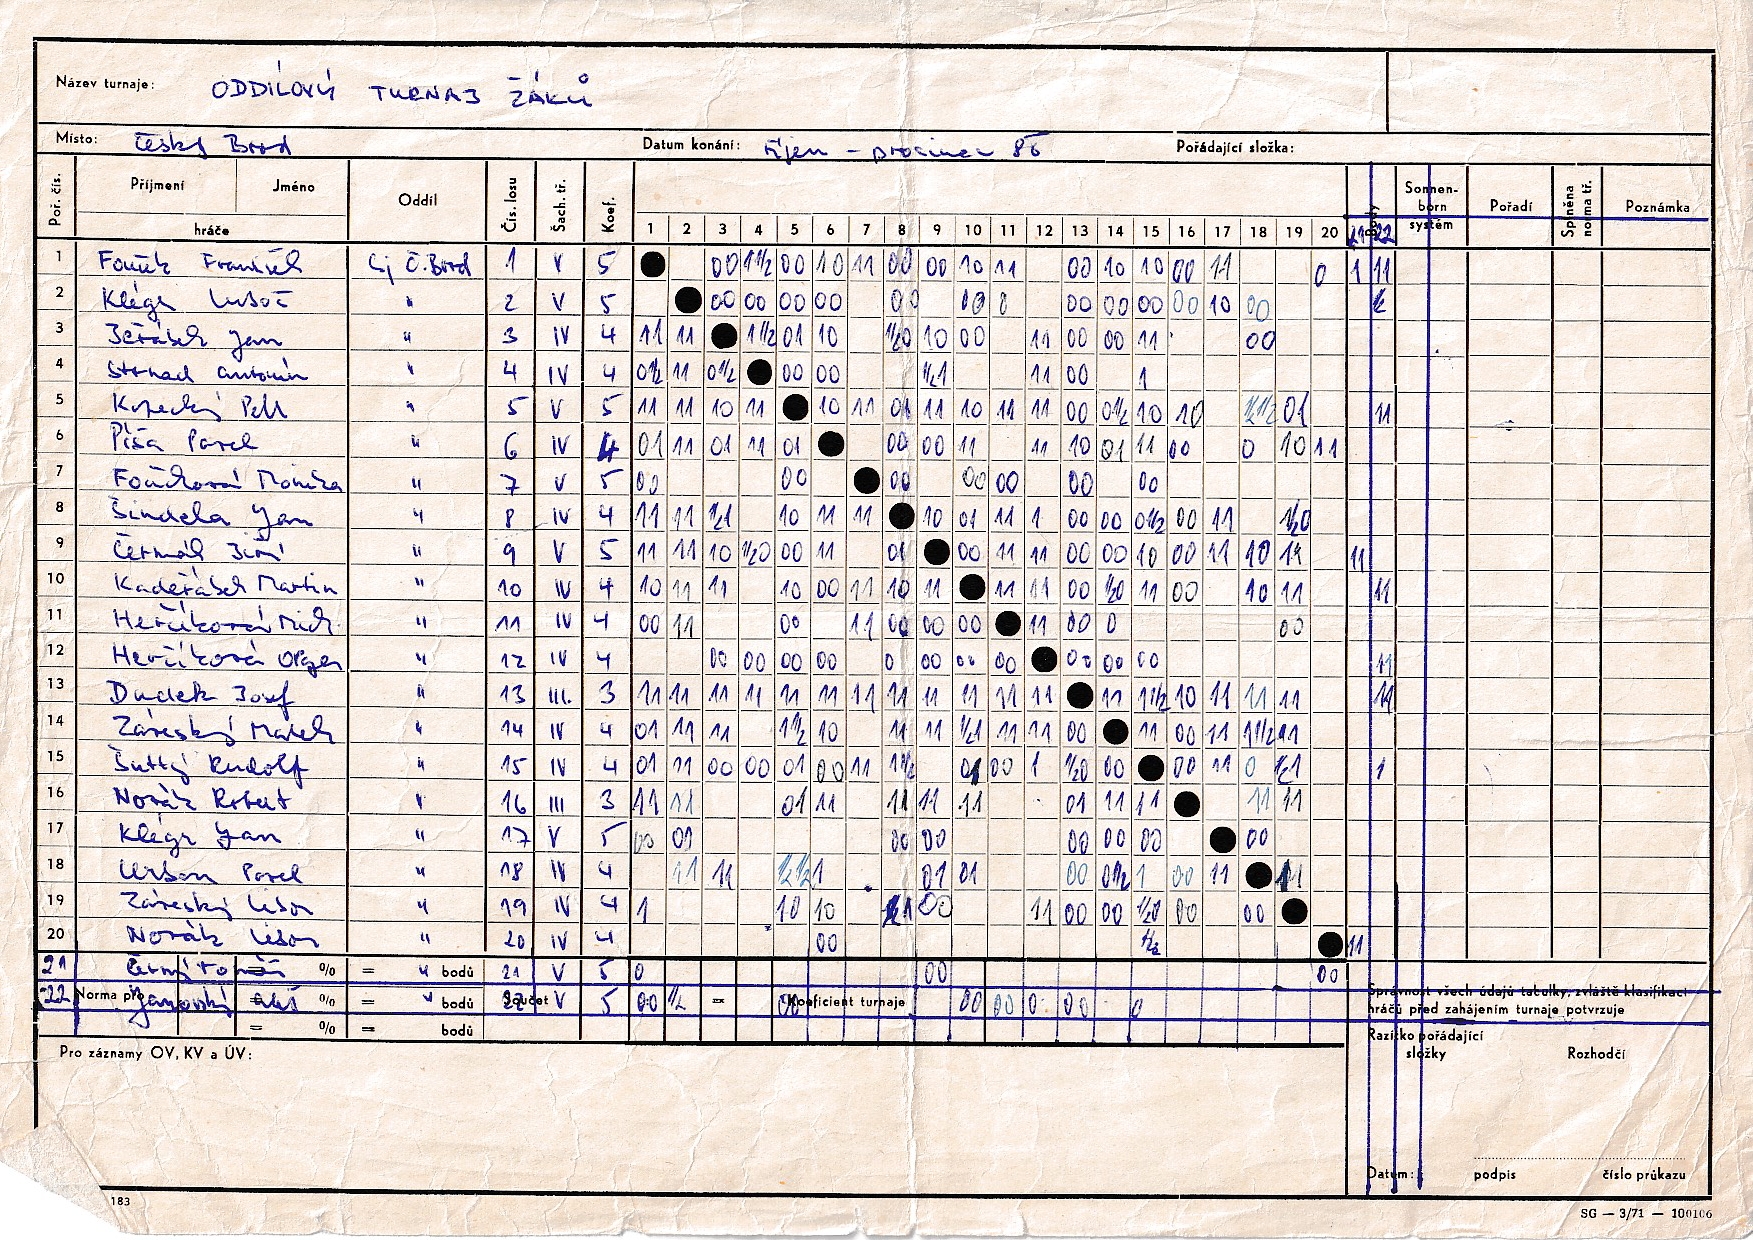 Název turnaje: ODDÍLOVÝ TURNAJ ŽÁKŮ
Místo: Český Brod Datum konání: říjen - prosinec 86 Pořádající složka:
Poř. čís. Příjmení Jméno Oddíl Čís. losu Šach. tř. Koef. Body Sonnen-born systém Pořadí Splněna norma tř. Poznámka
hráče 1 2 3 4 5 6 7 8 9 10 11 12 13 14 15 16 17 18 19 20 21 22
1 František Č. Brod 1 V 5 00 1 1/2 00 10 11 00 00 10 11 00 10 10 00 11 0 1 11
2 Klégr Luboš " 2 V 5 00 00 00 00 00 00 0 00 00 00 00 10 00 1/2
3 Jeřábek Jan " 3 IV 4 11 11 1 1/2 01 10 1/2 0 10 00 11 00 00 11 00
4 Strnad Antonín " 4 IV 4 0 1/2 11 0 1/2 00 00 1/2 1 11 00 1
5 Kopecký Petr " 5 V 5 11 11 10 11 10 11 01 11 10 11 11 00 0 1/2 10 10 1/2 1/2 01 11
6 Píša Pavel " 6 IV 4 01 11 01 11 01 00 00 11 11 10 01 11 00 0 10 11
7 Monika " 7 V 5 00 00 00 00 00 00 00
8 Šindela Jan " 8 IV 4 11 11 1/2 1 10 11 11 10 01 11 1 00 00 0 1/2 00 11 1/2 0
9 Čermák Jiří " 9 V 5 11 11 10 1/2 0 00 11 01 00 11 11 00 00 10 00 11 10 11 11
10 Kadeřábek Martin " 10 IV 4 10 11 11 10 00 11 10 11 11 11 00 1/2 0 11 00 10 11 11
11 Herčíková Mich. " 11 IV 4 00 11 00 11 00 00 00 11 00 0 00
12 Herčíková Olga " 12 IV 4 00 00 00 00 0 00 00 00 00 00 00 11
13 Dudek Josef " 13 III. 3 11 11 11 11 11 11 11 11 11 11 11 11 11 1 1/2 10 11 11 11 11
14 Zárecký Marek " 14 IV 4 01 11 11 1 1/2 10 11 11 1/2 1 11 11 00 11 00 11 1 1/2 11
15 Šutký Rudolf " 15 IV 4 01 11 00 00 01 00 11 1 1/2 01 00 1 1/2 0 00 00 11 0 1/2 1 1
16 Novák Robert " 16 III 3 11 11 01 11 11 11 10 01 11 11 11 11
17 Klégr Jan " 17 V 5 00 01 00 00 00 00 00 00
18 Urban Pavel " 18 IV 4 11 11 1/2 1/2 1 01 01 00 0 1/2 1 00 11
19 Zárecký Libor " 19 IV 4 1 10 10 00 11 00 00 1/2 0 00 00
20 Novák Libor " 20 IV 4 00 1/2 11
21 Černý Tomáš = % = " bodů 21 V 5 0 00 00
22 Norma pro Janovský Aleš = % = " bodů Součet 22 V 5 00 1/2 = 00 Koeficient turnaje 00 00 0 00 0 Správnost všech údajů tabulky, zvláště klasifikaci
= % = bodů hráčů před zahájením turnaje potvrzuje
Pro záznamy OV, KV a ÚV: Razítko pořádající složky Rozhodčí
Datum: podpis číslo průkazu
183 SG — 3/71 — 100106